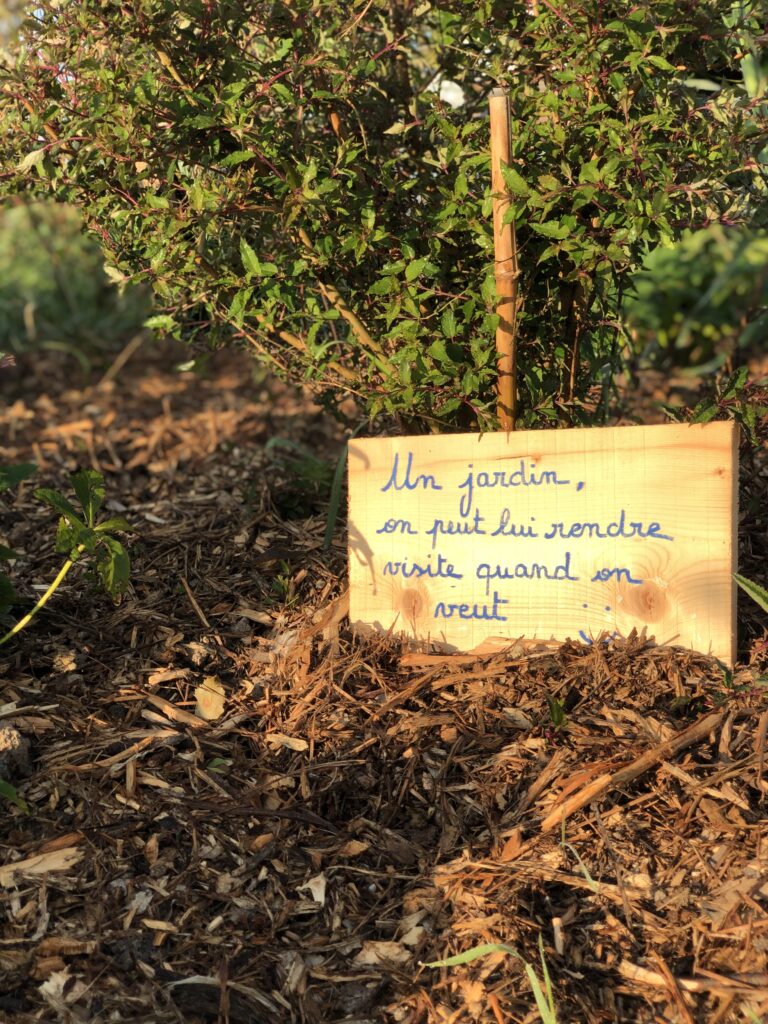 Un jardin,
on peut lui rendre
visite quand on
veut